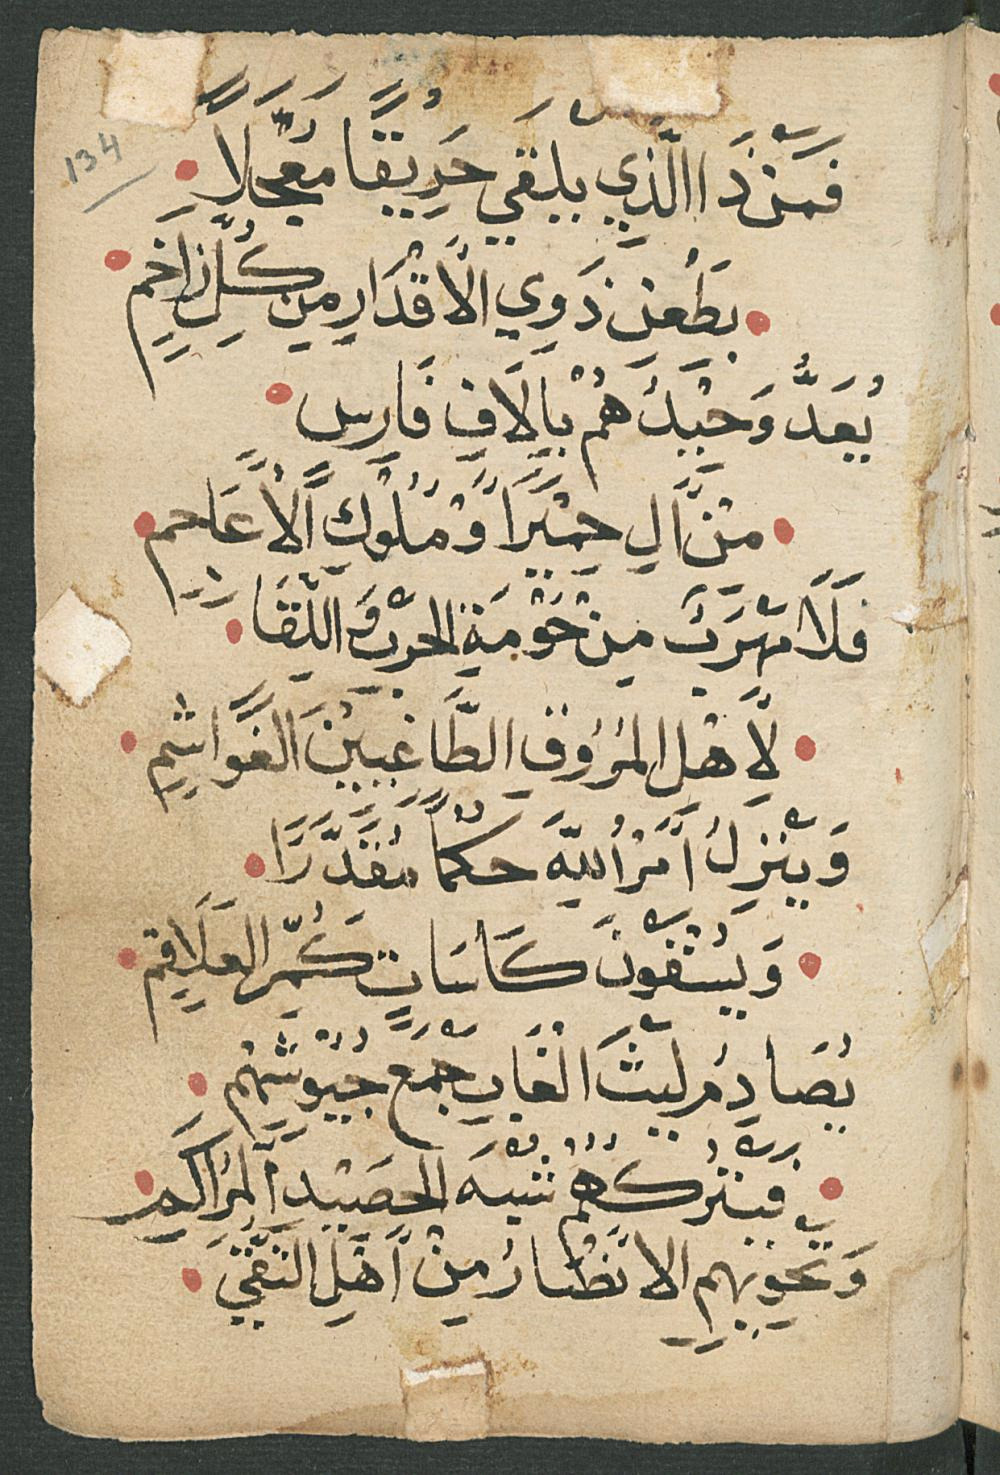 134
فَمَنْ ذَا الَّذِي يَلْقَي حَرِيقًا مُعَجَّلاً
بِطَعْنِ ذَوِي الأَقْدَارِ مِنْ كُلِّ
يُعَدُّ وَحِيْدُهُمْ بِآلَافِ فَارِسٍ
مِنْ آلِ حِمْيَرًا وَمُلُوكِ الأَعَاجِمِ
فَلَا مَهْرَبَ مِنْ حَوْمَةِ الحَرْبِ وَاللِّقَا
لَأَهْلِ الطَّاغِيِيْنَ الغَوَاشِمِ
وَيَنْزِلُ أَمْرُ اللَّهِ حُكْمًا مُقَدَّرًا
وَيُسْقَوْنَ كَاسَاتٍ كَمُرِّ العَلَاقِمِ
يُصَادِمُ لَيْثَ الْغَابِ جَمْعُ جُيُوْشِهُمْ
فَيَتْرُكُهُمْ شِبْهَ الحَصِيْدِ
وَ بِهِمِ الانْظَارُ مِنْ أَهْلِ التُّقَي